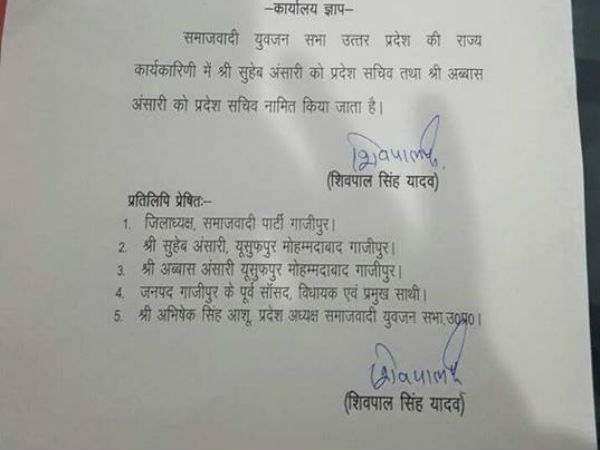 –कार्यालय ज्ञाप–
समाजवादी युवजन सभा उत्तर प्रदेश की राज्य
कार्यकारिणी में श्री सुहेब अंसारी को प्रदेश सचिव तथा श्री अब्बास
अंसारी को प्रदेश सचिव नामित किया जाता है।
शिवपाल
(शिवपाल सिंह यादव)
प्रतिलिपि प्रेषितः–
1. जिलाध्यक्ष, समाजवादी पार्टी गाजीपुर।
2. श्री सुहेब अंसारी, यूसुफपुर मोहम्मदाबाद गाजीपुर।
3. श्री अब्बास अंसारी यूसुफपुर मोहम्मदाबाद गाजीपुर।
4. जनपद गाजीपुर के पूर्व सॉसद, विधायक एवं प्रमुख साथी।
5. श्री अभिषेक सिंह आशू, प्रदेश अध्यक्ष समाजवादी युवजन सभा,उ0प्र0।
शिवपाल
(शिवपाल सिंह यादव)